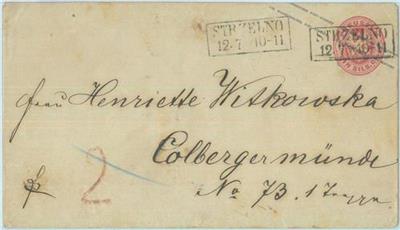 STRZELNO
12.7 10-11
STRZELNO
12.7 10-11
Frau Henriette Witkowska
Colbergermünde
No 73. 1
2